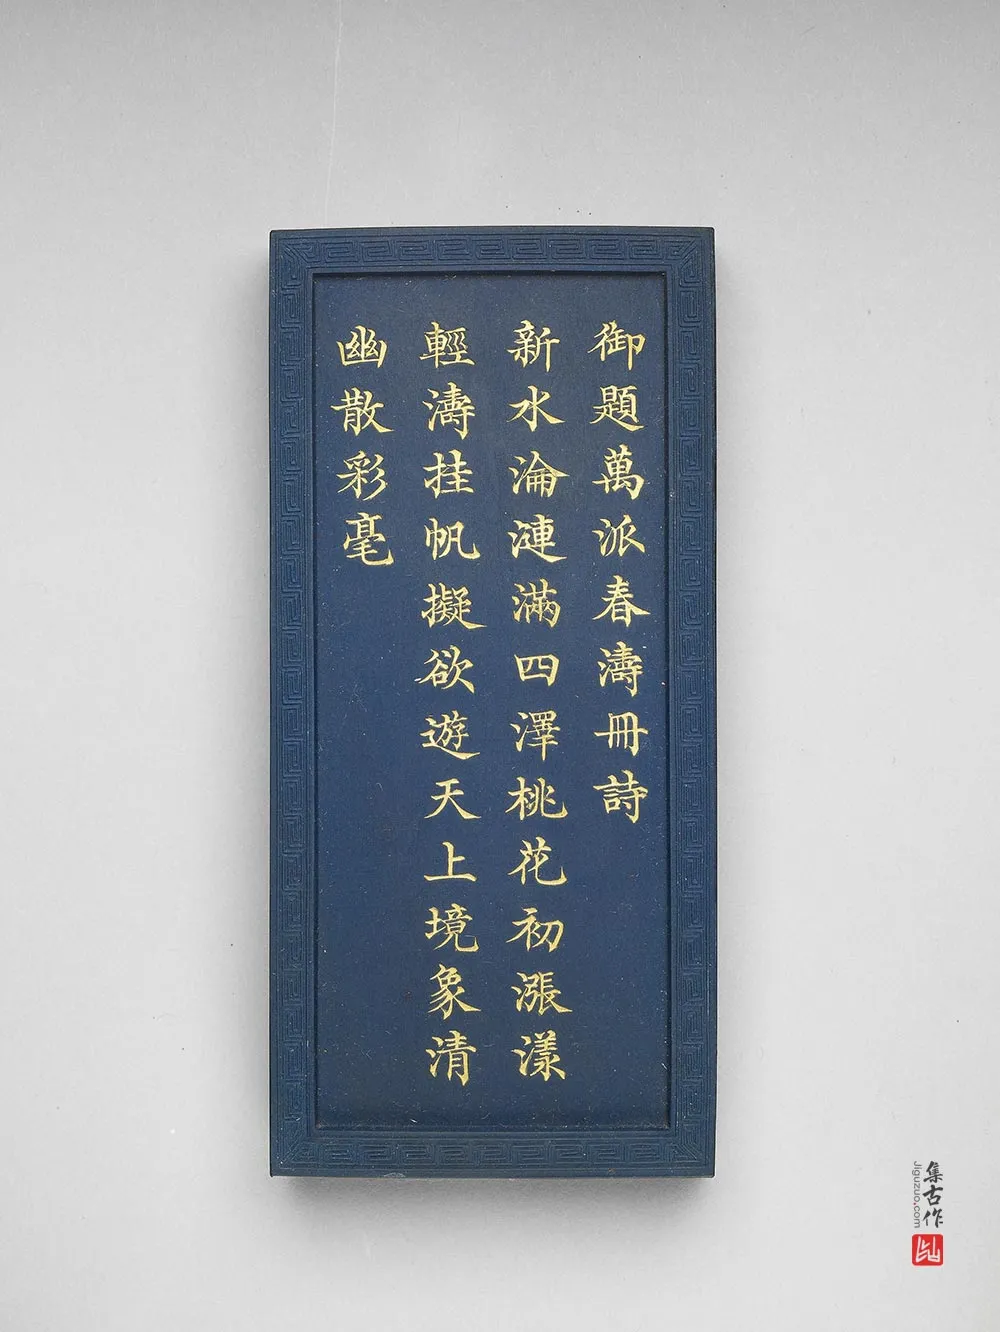 御題萬派春濤冊詩
新水淪漣滿四澤桃花初漲漾
輕濤挂帆擬欲遊天上境象清
幽散彩毫
集古作
Jiguzuo.com